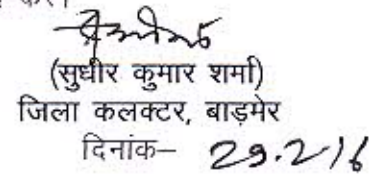 (सुधीर कुमार शर्मा)
जिला कलक्टर, बाड़मेर
दिनांक– 29.2.16